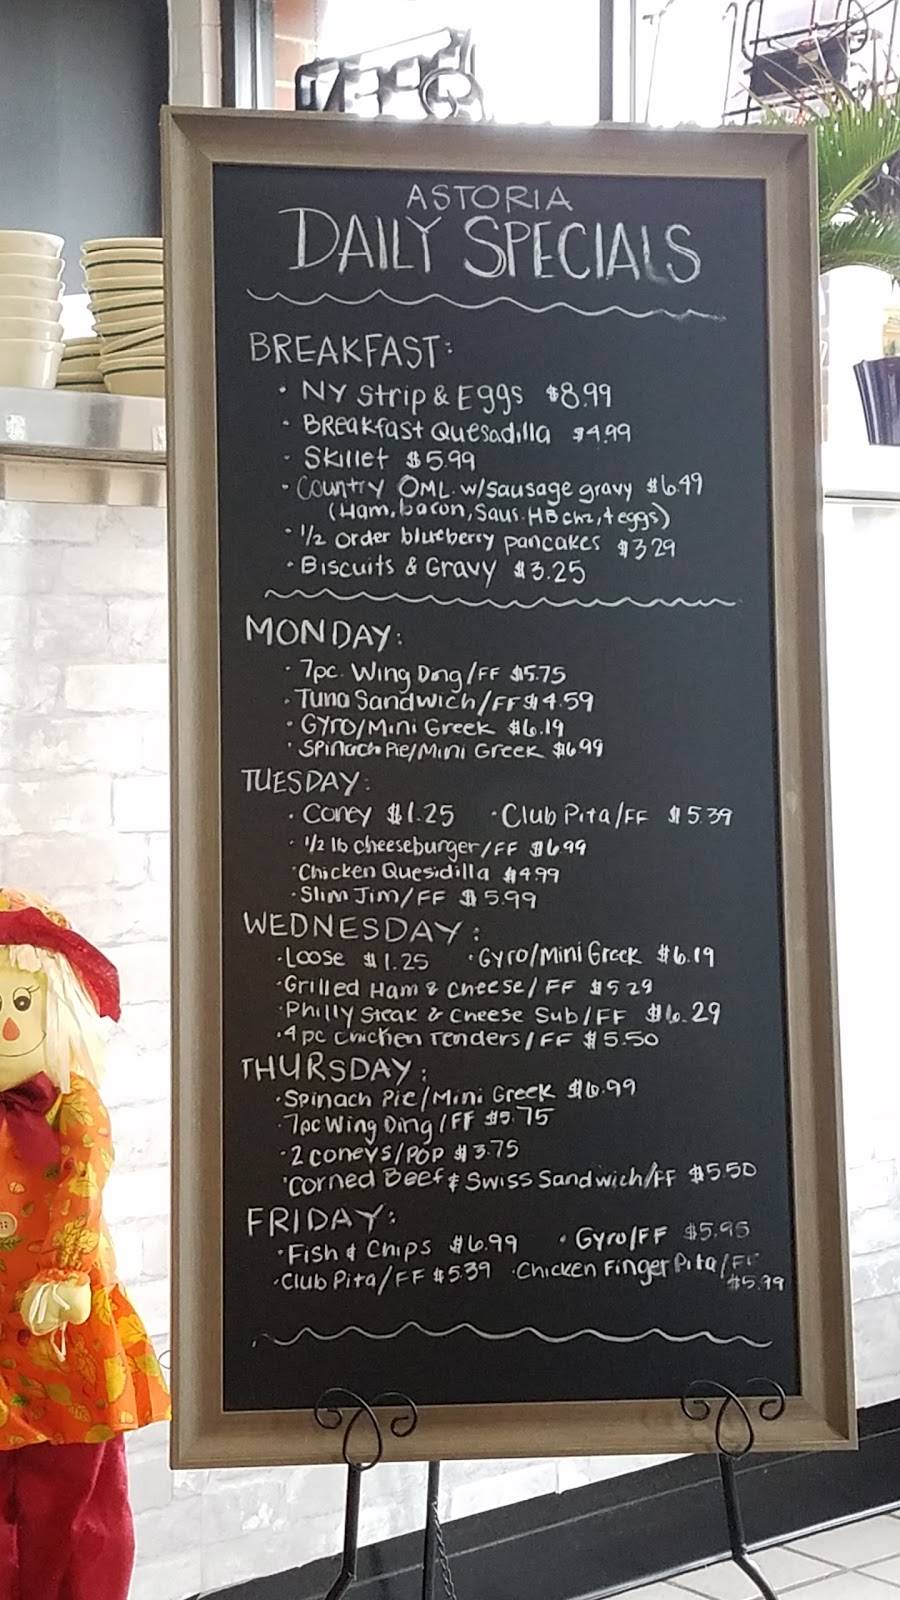 ASTORIA
DAILY SPECIALS
BREAKFAST:
• NY Strip & Eggs $8.99
• BREakfast Quesadilla $4.99
- Skillet $5.99
- Country OML. w/Sausage gravy $6.49
(Ham, bacon, Saus. HB chz, 4 eggs)
• 1/2 order blueberry pancakes $3.29
• Biscuits & Gravy $3.25
MONDAY:
• 7pc. Wing Ding/FF $5.75
• Tuna Sandwich/FF $4.59
• Gyro/Mini Greek $6.19
• Spinach Pie/Mini Greek $6.99
TUESDAY:
• Coney $1.25 • Club Pita/FF $5.39
• 1/2 lb cheeseburger/FF $6.99
• Chicken Quesidilla $4.99
• Slim Jim/FF $5.99
WEDNESDAY:
• Loose $1.25 • Gyro/Mini Greek $6.19
• Grilled Ham & Cheese/FF $5.29
• Philly Steak & Cheese Sub/FF $6.29
• 4 pc Chicken Tenders/FF $5.50
THURSDAY:
• Spinach Pie/Mini Greek $6.99
• 7pc Wing Ding/FF $5.75
• 2 coneys/POP $3.75
• Corned Beef & Swiss Sandwich/FF $5.50
FRIDAY:
• Fish & Chips $6.99 • Gyro/FF $5.95
• Club Pita/FF $5.39 • Chicken Finger Pita/FF
$5.99